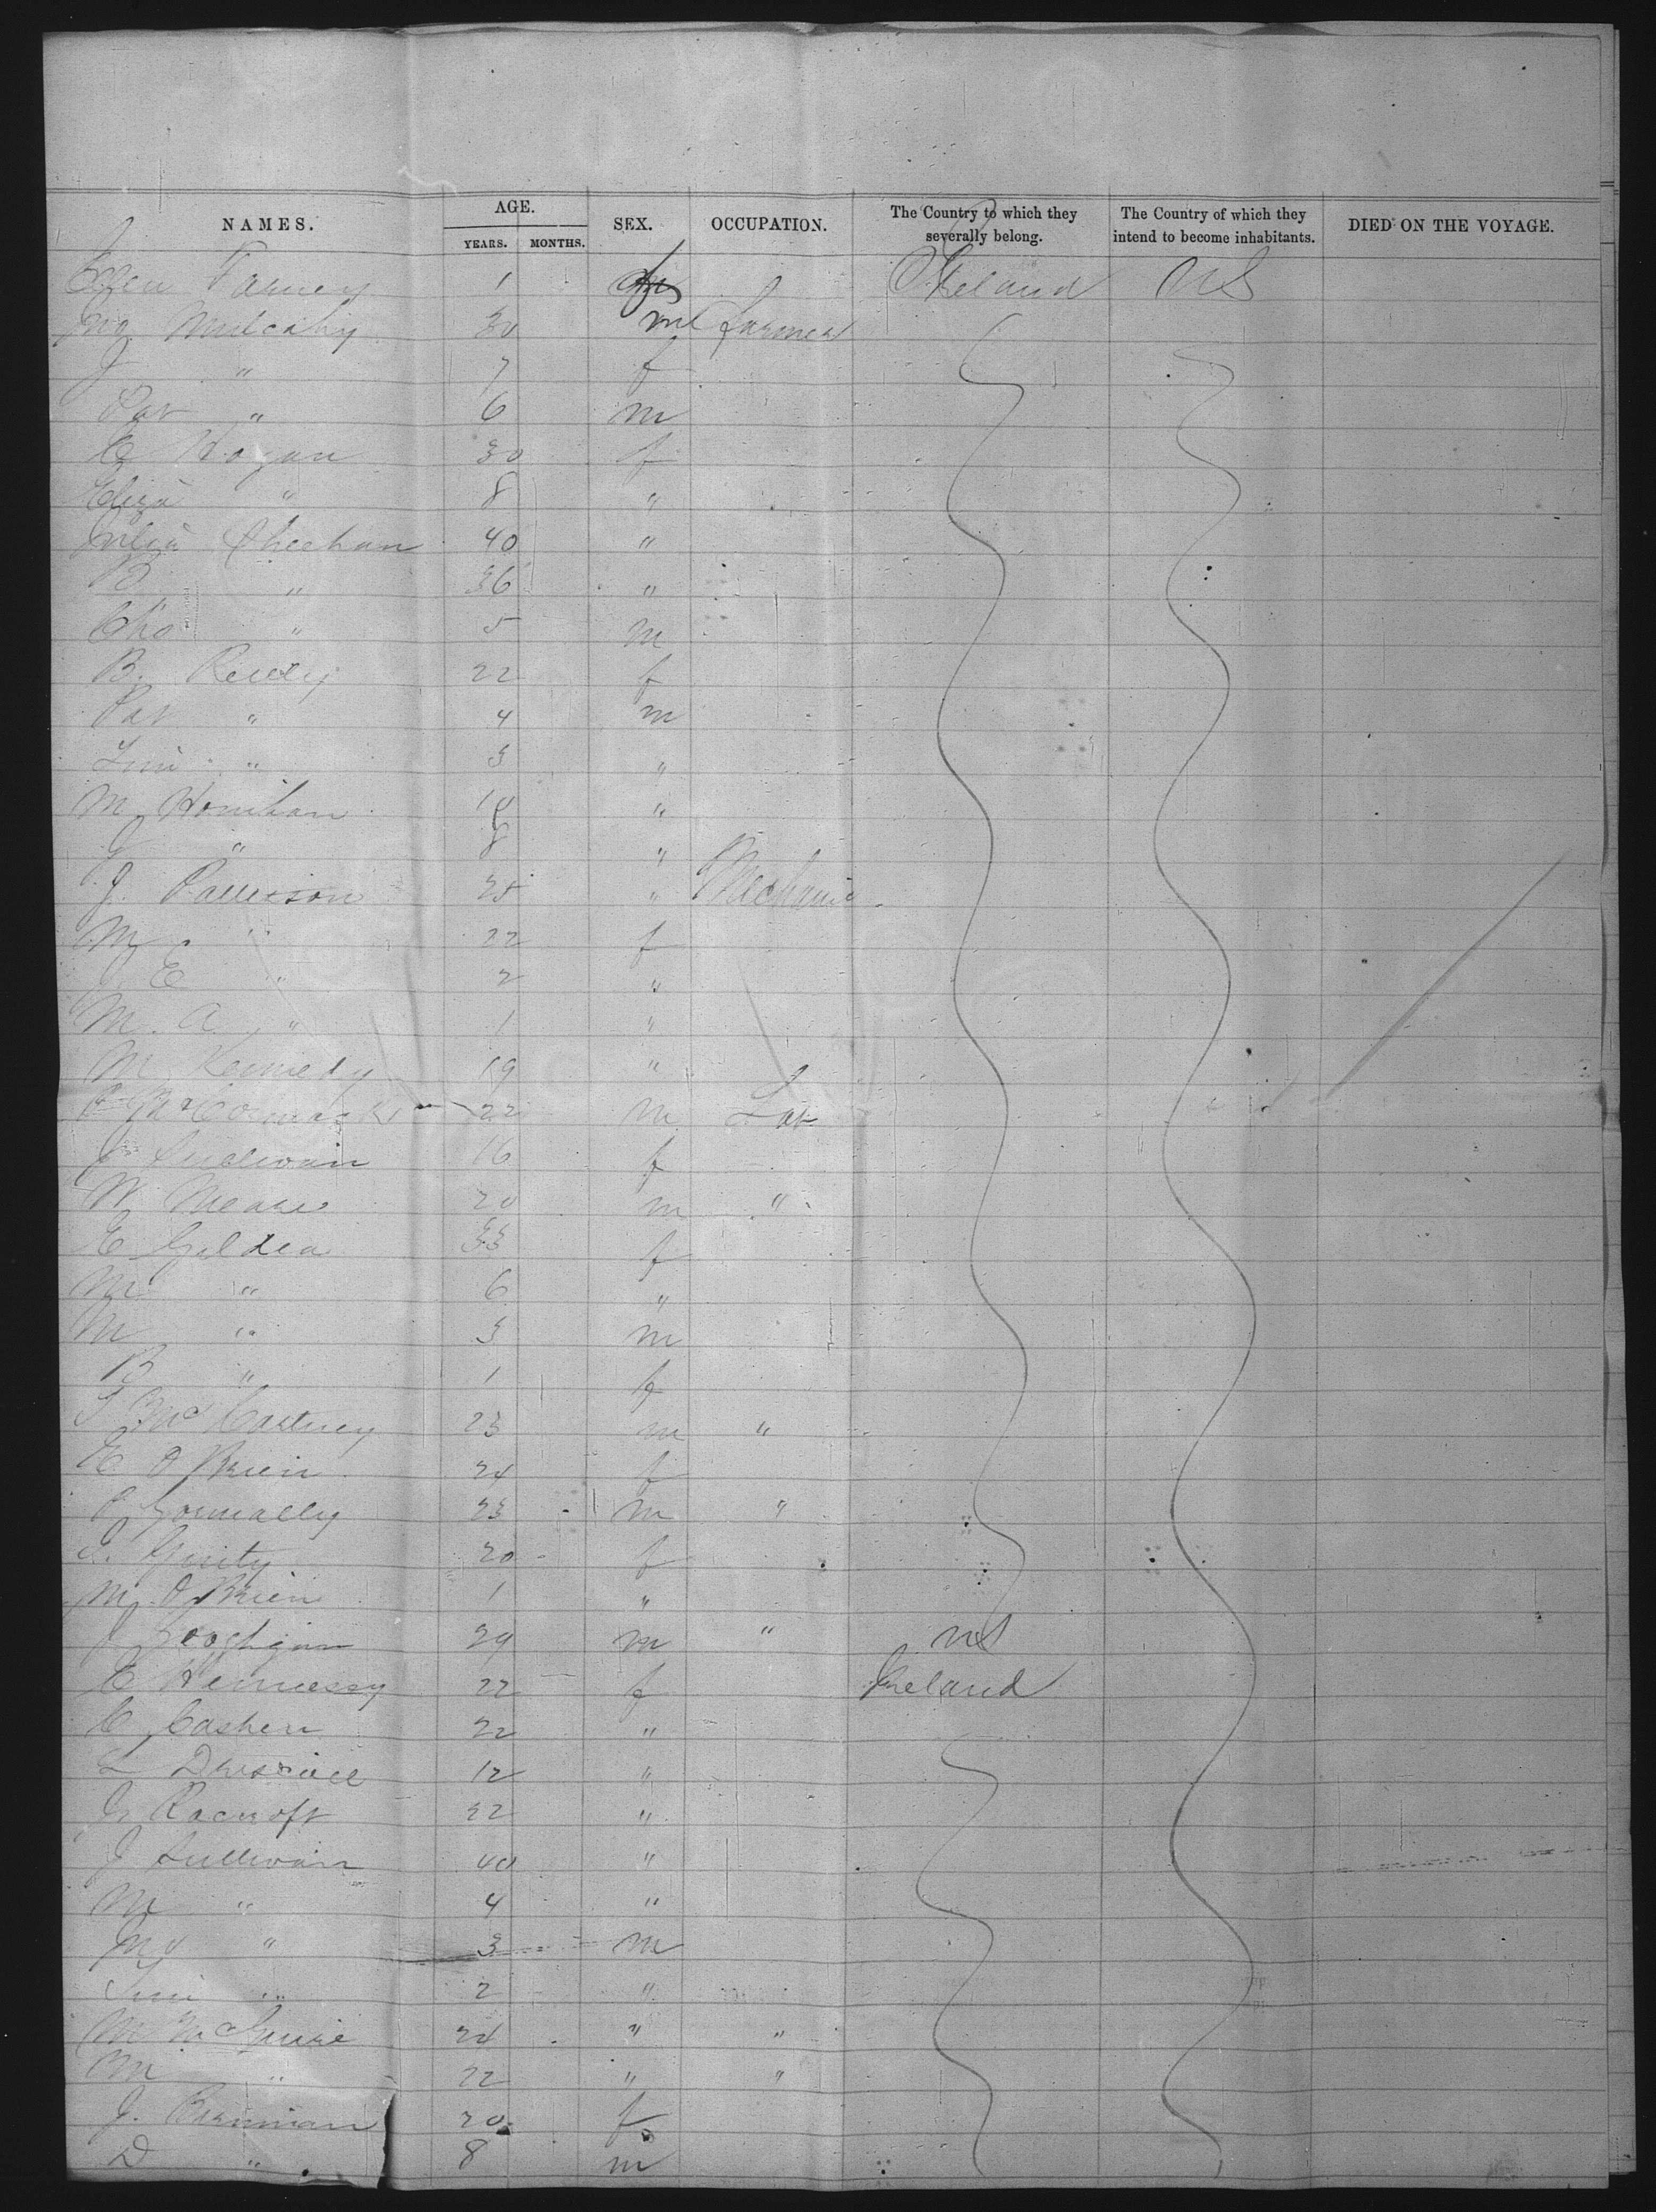 NAMES. AGE. SEX. OCCUPATION. The Country to which they severally belong. The Country of which they intend to become inhabitants. DIED ON THE VOYAGE.
YEARS. MONTHS.
Ellen 1 Ireland US
Jno Mulcahy 30 m farmer
J " 7 f
Pat " 6 m
C Hogan 30 f
Eliza " 8 "
Julia Sheehan 40 "
B " 36 "
Cho " 5 m
B. Reidy 22 f
Pat " 4 m
Tim " 3 "
M Honihan 10 "
J " 8 "
J. Patterson 25 " Mechanic
M " 22 f
J E " 2 "
M. A. " 1 "
M Kennedy 19 "
P McCormack 22 m Lab
J Sullivan 16 f
W 20 m "
E Gildea 33 f
M " 6 "
M " 3 m
B " 1 f
McCartney 23 m "
C O'Brien 24 f
P Connally 23 m "
20 f
M O'Brien 1 "
J Geoghgan 29 m " US
C Hennessy 22 f Ireland
C Cashen 22 "
L Driscoll 12 "
22 "
J Sullivan 40 "
M " 4 "
" 3 m
Tim " 2 "
M McGuire 24 " "
M " 22 " "
J. 20 f
D " 8 m